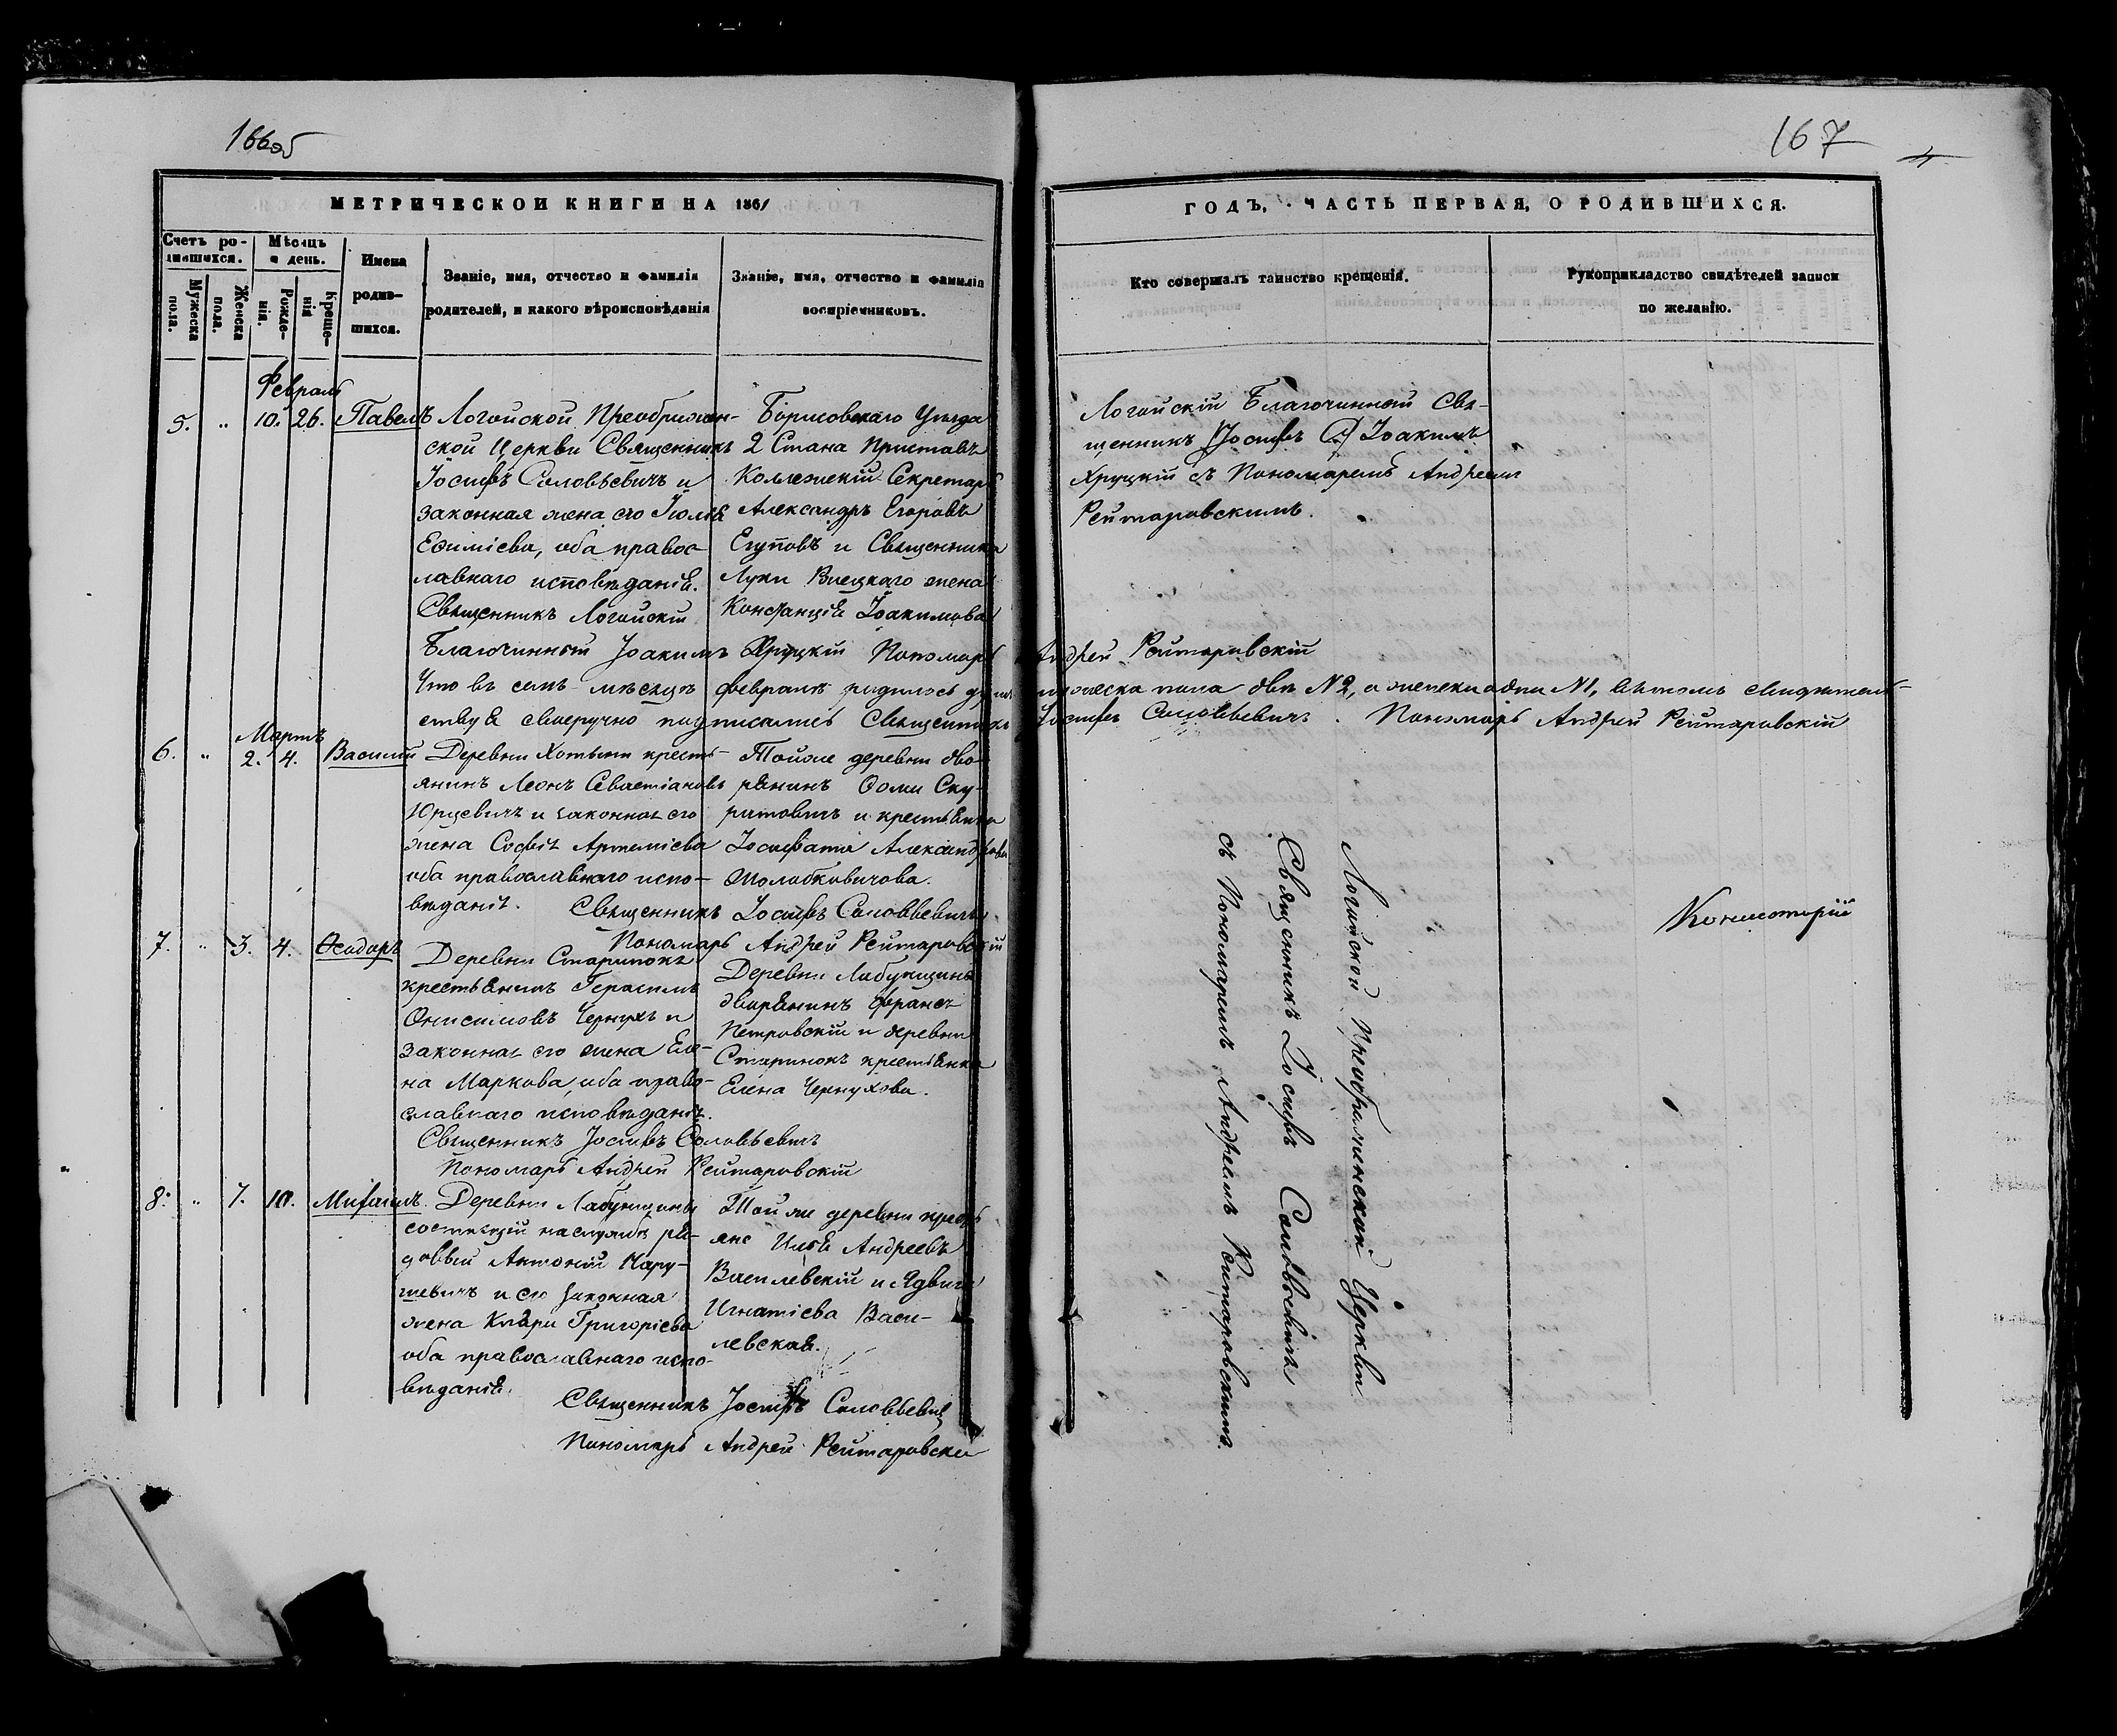 166об
МЕТРИЧЕСКОЙ КНИГИ НА 1861
Счетъ ро-
дившихся.
Мѣсяцъ
и день.
Имена
родив-
шихся.
Званіе, имя, отчество и фамилія
родителей, и какого вѣроисповѣданія
Званіе, имя, отчество и фамилія
воспріемниковъ.
Мужеска
пола.
Женска
пола.
Рожде-
нія.
Креще-
нія
Февраль
5. „ 10. 26. Павелъ
Логойской Преображен-
ской Церкви Священникъ
Іосифъ Соловьевичъ и
законная жена его Іюлія
Ефиміева, оба правос-
лавнаго исповѣданія.
Священникъ Логойскій
Борисовскаго Уѣзда
2 Стана Приставъ
Коллежскій Секретарь
Александръ Егоровъ
Егуповъ и Священника
Луки жена
Констанція Іоакимова
Благочинный Іоакимъ Хруцкій Пономарь Андрей Рейтаровскій
Что въ семъ мѣсяцѣ февралѣ родилось мужеска пола два №2, а женска одна №1, въ томъ свидѣтель-
ствуя своеручно подписались Священникъ Іосифъ Соловьевичъ. Пономарь Андрей Рейтаровскій
Мартъ
6. „ 2. 4. Василій
Деревни Хотыни кресть-
янинъ Леонъ Севастіановъ
Юрцевичъ и законная его
жена Софія Артеміева
оба православнаго испо-
вѣданія.
Тойже деревни дво-
рянинъ Ѳома Ску-
ратовичъ и крестьянка
Іосифата Александрова
Священникъ Іосифъ Соловьевичъ
Пономарь Андрей Рейтаровскій
7. „ 3. 4. Ѳеодоръ
Деревни Старинокъ
крестьянинъ Герасимъ
Онисимовъ Чернухъ и
законная его жена Еле-
на Маркова, оба право-
славнаго исповѣданія.
Деревни Лабунщины
дворянинъ Францъ
Петровскій и деревни
Старинокъ крестьянка
Елена Чернухова.
Священникъ Іосифъ Соловьевичъ
Пономарь Андрей Рейтаровскій
8. „ 7. 10. Михаилъ
Деревни Лабунщины
состоящій на службѣ ря-
довый Антоній Кару-
шевичъ и его законная
жена Клара Григоріева
оба православнаго испо-
вѣданія.
Той же деревни кресть
яне Илья Андреевъ
Василевскій и Ядвига
Игнатіева Васи-
левская.
Священникъ Іосифъ Соловьевичъ
Пономарь Андрей Рейтаровскій
167
ГОДЪ, ЧАСТЬ ПЕРВАЯ, О РОДИВШИХСЯ.
Кто совершалъ таинство крещенія.
Рукоприкладство свидѣтелей записи
по желанію.
Логойскій Благочинный Свя-
щенникъ Іоакимъ
Хруцкій съ Пономаремъ Андреемъ
Рейтаровскимъ.
Логойской Преображенской Церкви
Священникъ Іосифъ Соловьевичъ
съ Пономаремъ Андреемъ Рейтаровскимъ.
Консисторіи